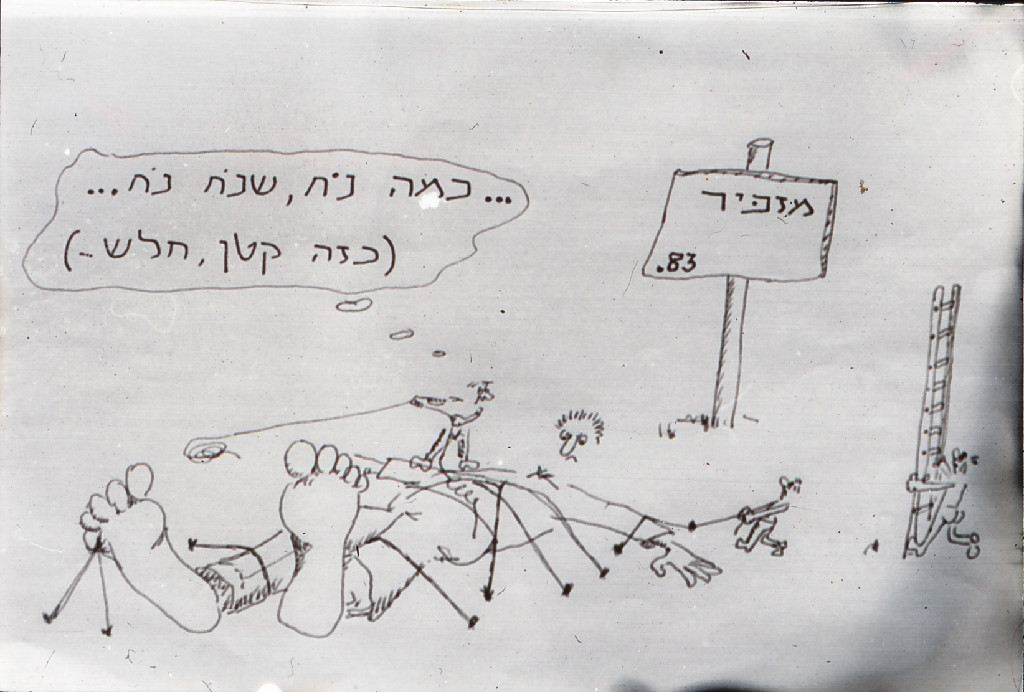 ...כמה נֹח, שנֹח נֹח...
(כזה קטן, חלש..)
מזכיר
83.